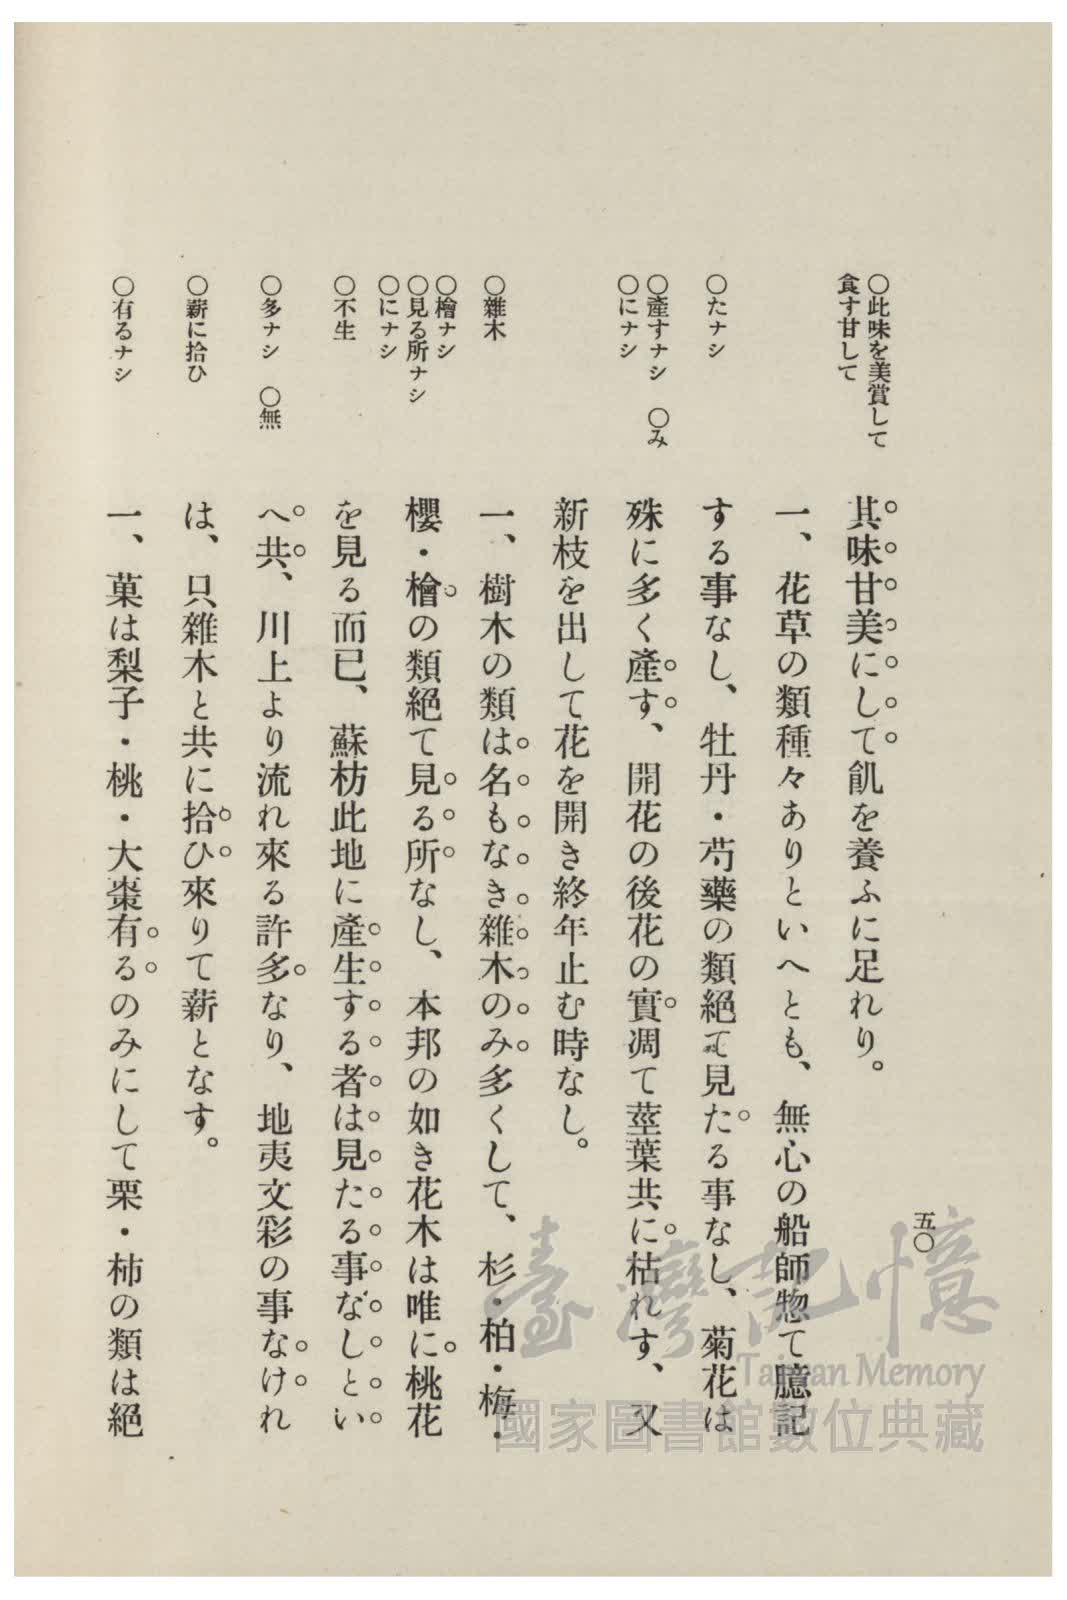 五〇
○此味を美賞して
食す甘して
○たナシ
○產すナシ　○み
○にナシ
○雜木
○檜ナシ
○見る所ナシ
○にナシ
○不生
○多ナシ　○無
○薪に拾ひ
○有るナシ
其味甘美にして飢を養ふに足れり。
一、花草の類種々ありといへとも、無心の船師惣て臆記
する事なし、牡丹・芍藥の類絕て見たる事なし、菊花は
殊に多く產す、開花の後花の實凋て莖葉共に枯れす、又
新枝を出して花を開き終年止む時なし。
一、樹木の類は名もなき雜木のみ多くして、杉・柏・梅・
櫻・檜の類絕て見る所なし、本邦の如き花木は唯に桃花
を見る而已、蘇枋此地に產生する者は見たる事なしとい
へ共、川上より流れ來る許多なり、地夷文彩の事なけれ
は、只雜木と共に拾ひ來りて薪となす。
一、菓は梨子・桃・大棗有るのみにして栗・柿の類は絕
臺灣記憶
Taiwan Memory
國家圖書館數位典藏